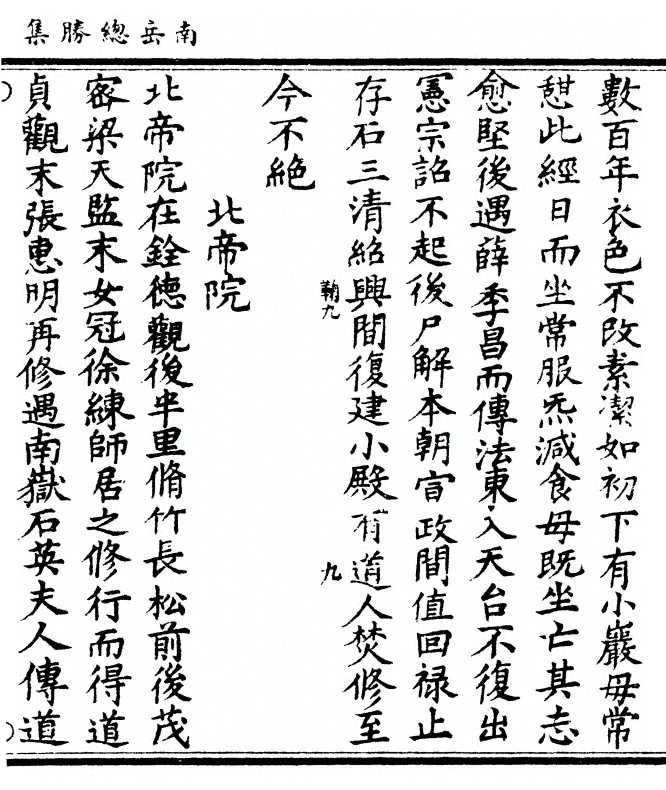 南岳總勝集
數百年衣色不改素潔如初下有小巖毋常
憇此經日而坐常服炁減食毋既坐亡其志
愈堅後遇薛季昌而傳法東入天台不復出
憲宗詔不起後尸解本朝宣政間值回禄止
存石三清紹興間復建小殿有道人焚修至
九
今不絶
北帝院
北帝院在銓德觀後半里脩竹長松前後茂
密梁天監末女冠徐練師居之修行而得道
貞觀末張惠明再修遇南嶽石英夫人傳道